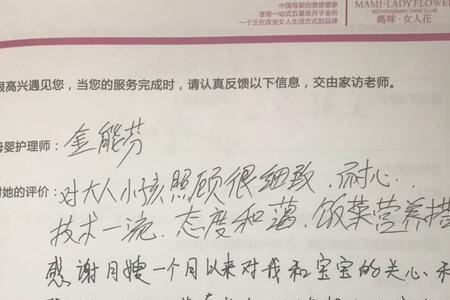 中国母婴的贵族管家
香港一站式五星级月子会所
一个正在改变女人生活方式的品牌
MAMI·LADY FLOWER
媽咪·女人花
很高兴遇见您，当您的服务完成时，请认真反馈以下信息，交由家访老师。
母婴护理师：金能芬
对她的评价：对大人小孩照顾很细致、耐心、
技术一流、态度和蔼、饭菜营养搭
感谢月嫂一个月以来对我和宝宝的关心